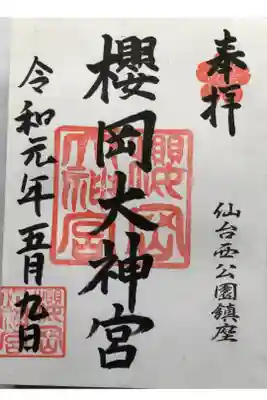 奉拝
仙台西公園鎮座
櫻岡大神宮
令和元年五月九日
櫻岡
大神宮
櫻岡
大神宮